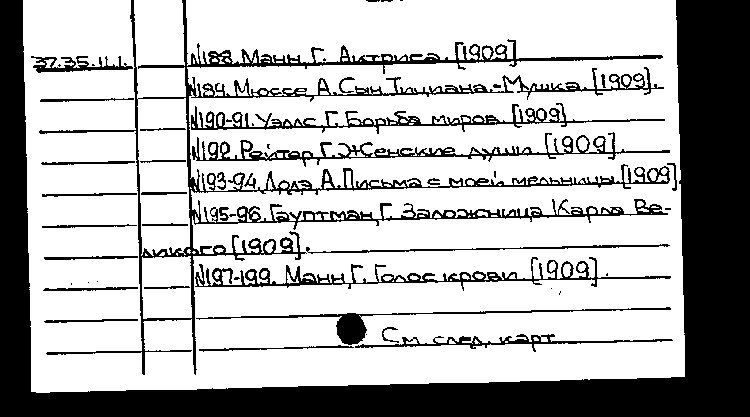 37.35.11.1. N188. Манн, Г. Актриса. [1909]
N189. Мюссе, А. Сын Тициана.-Мушка. [1909].
N190-91. Уэллс, Г. Борьба миров. [1909].
N192. Рейтер, Г. Женские души. [1909].
N193-94. Додэ, А. Письма с моей мельницы. [1909].
N195-96. Гауптман, Г. Заложница Карла Ве-
ликого [1909].
N197-199. Манн, Г. Голос крови. [1909].
См. след. карт